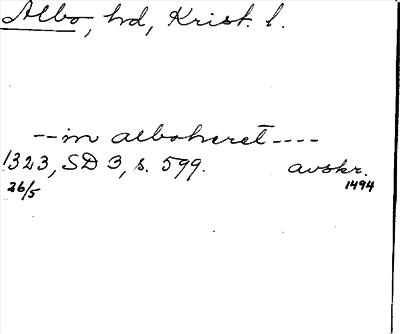 Albo, hd, Krist. l.
--in alboheret----
1323, SD 3, s. 599. avskr.
26/5 1494